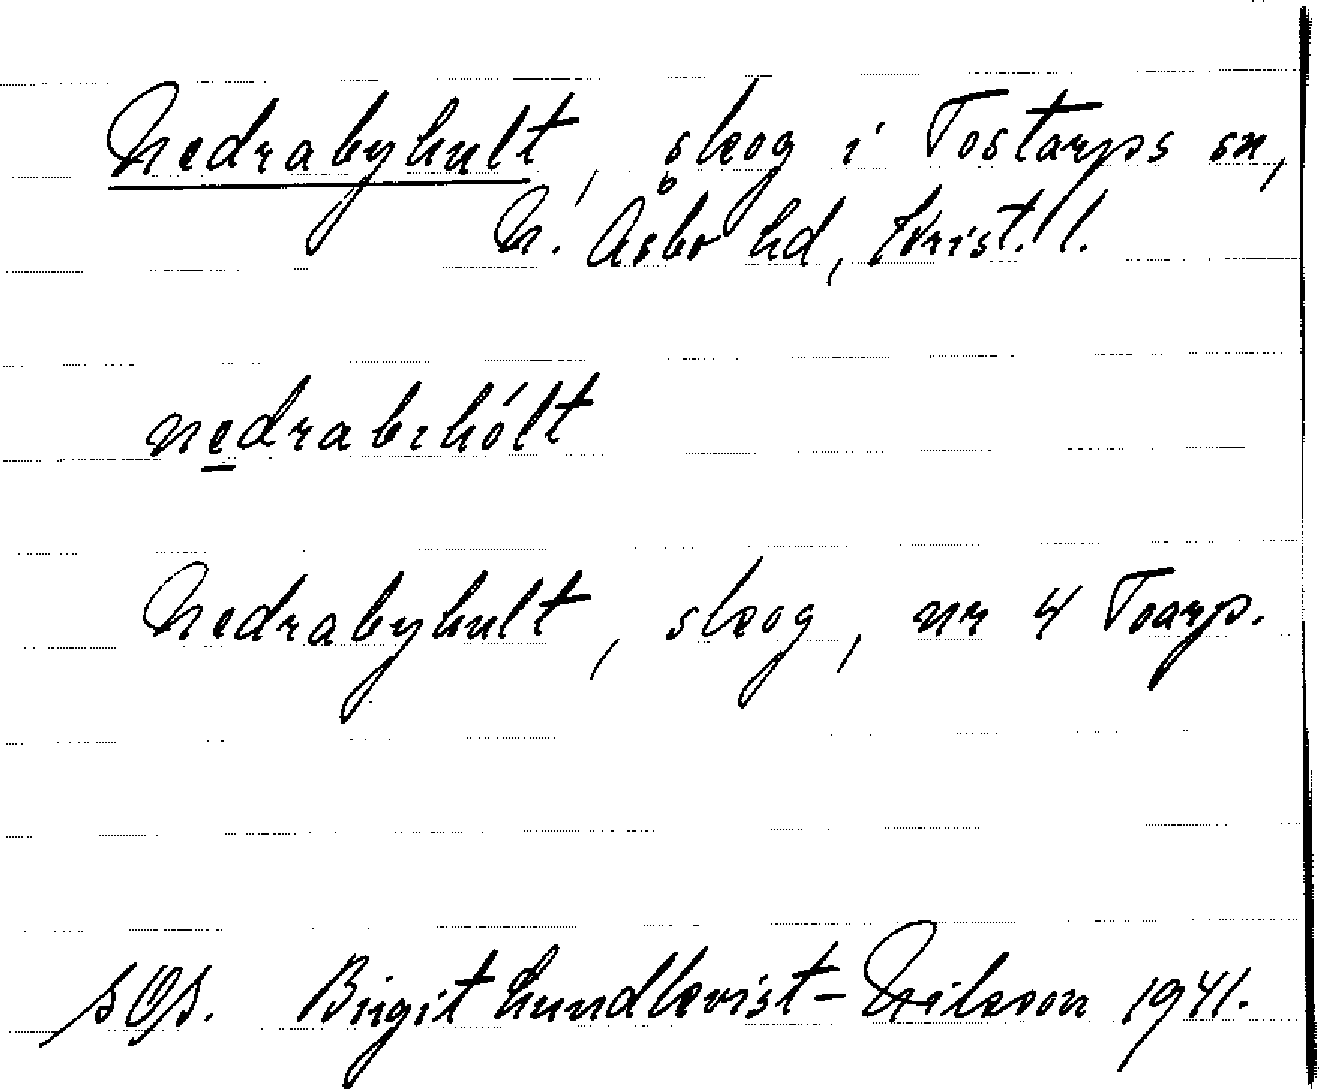 Nedrabyhult, skog i Tostarps sn,
N. Åsbo hd, Krist. l.
nedrabehólt
Nedrabyhult, skog, nr 4 Toarp.
SOS. Birgit Lundkvist-Nilsson 1941.